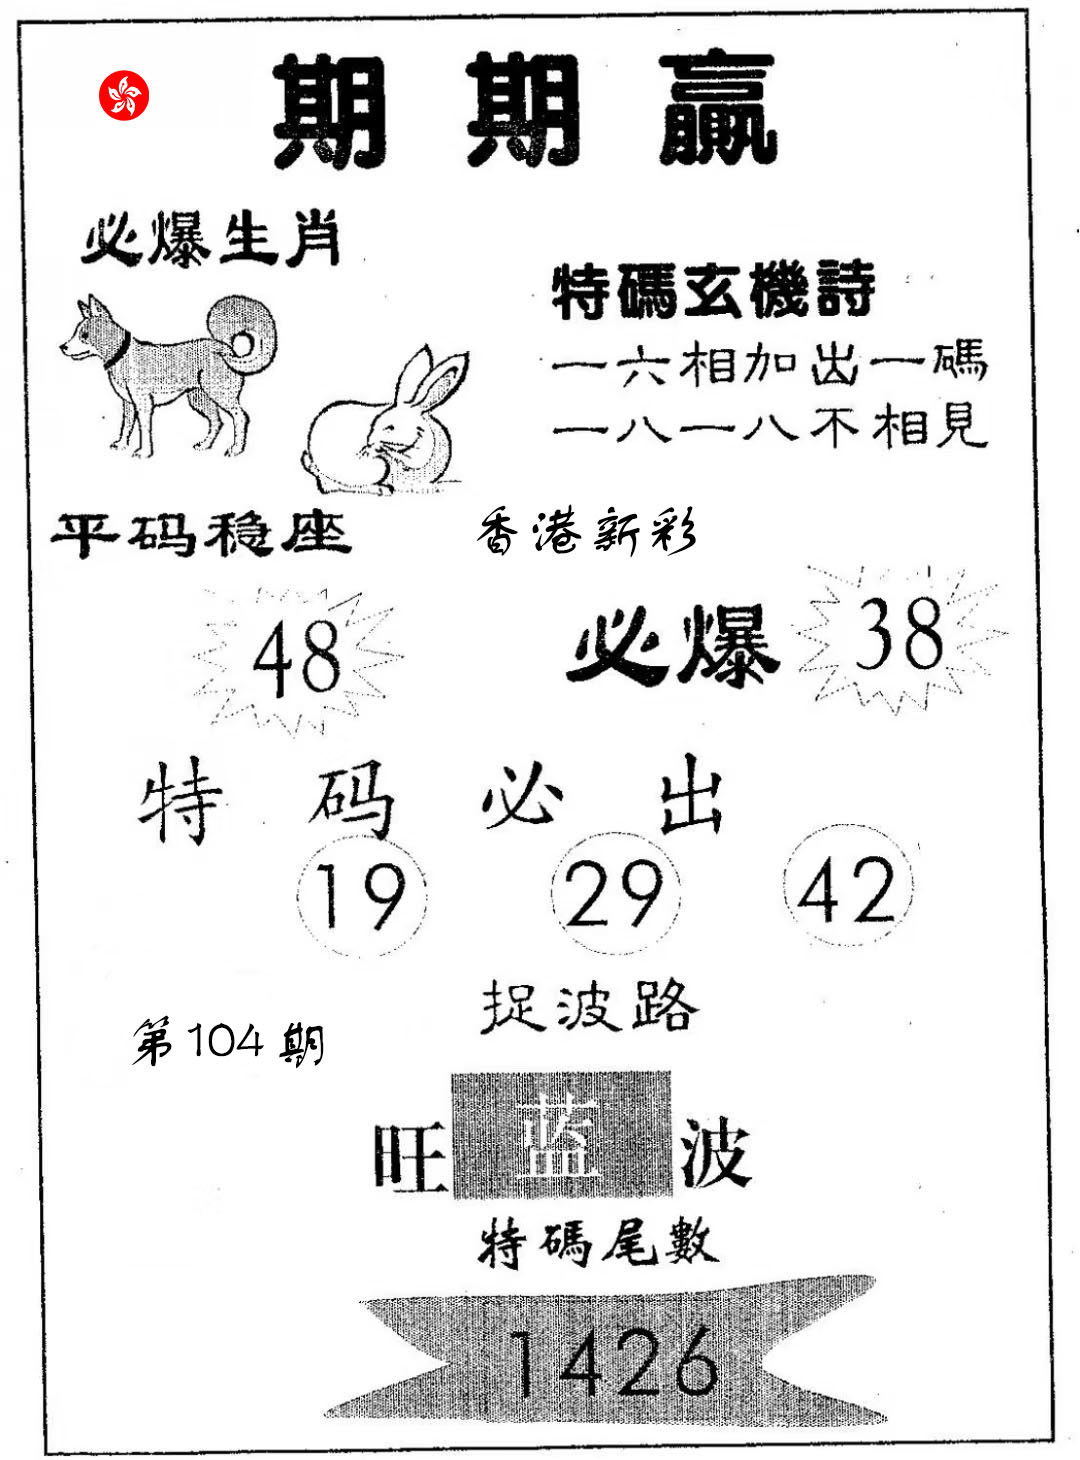 期期贏
必爆生肖
特碼玄機詩
一六相加出一碼
一八一八不相見
平码稳座
香港新彩
48
必爆 38
特码必出
19 29 42
捉波路
第104期
旺蓝波
特碼尾數
1426